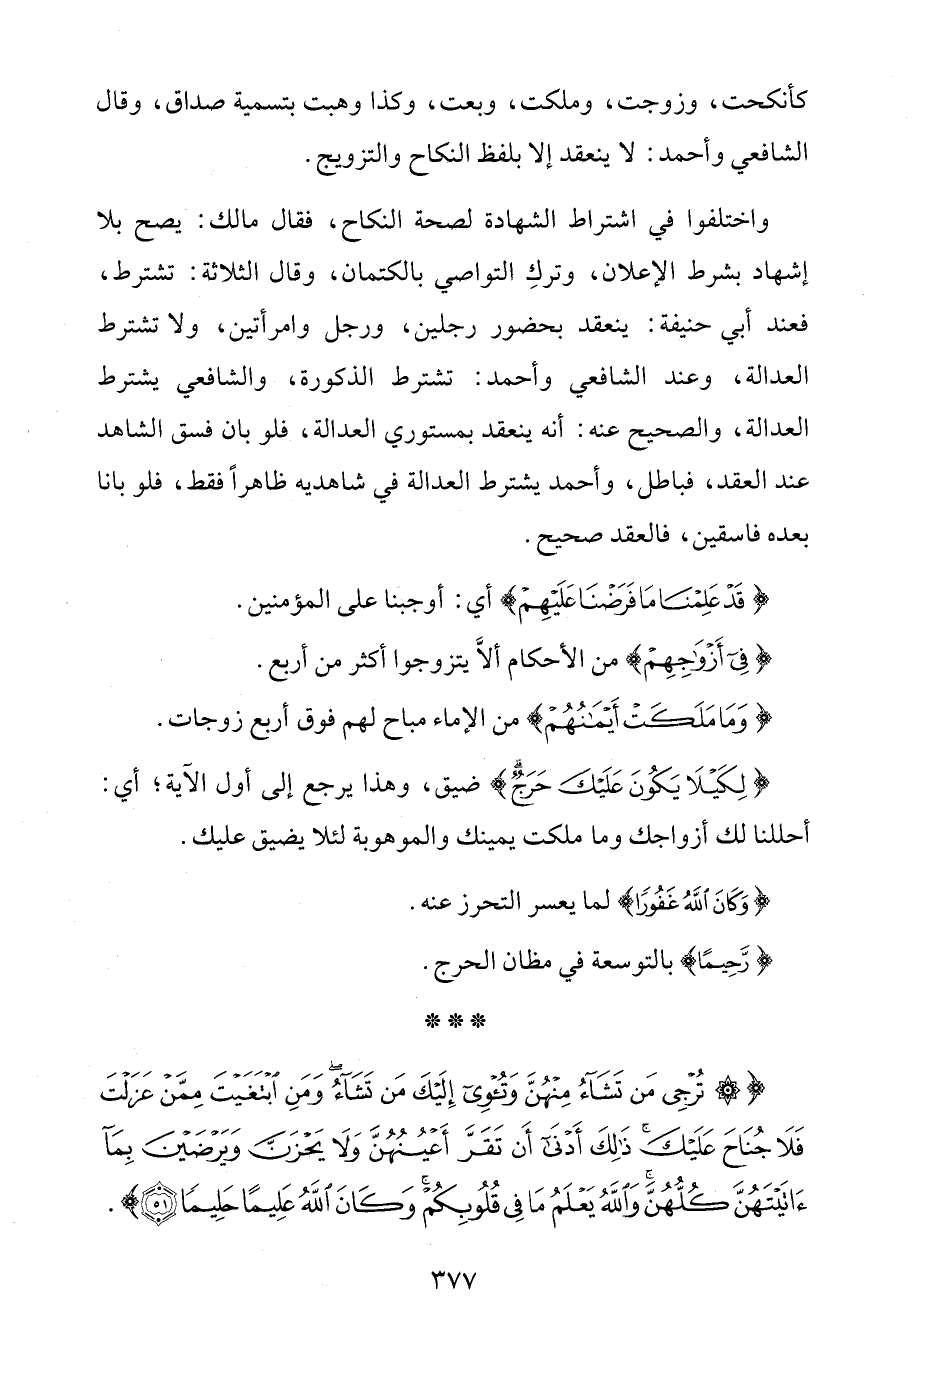 كأنكحت، وزوجت، وملكت، وبعت، وكذا وهبت بتسمية صداق، وقال
الشافعي وأحمد: لا ينعقد إلا بلفظ النكاح والتزويج.
واختلفوا في اشتراط الشهادة لصحة النكاح، فقال مالك: يصح بلا
إشهاد بشرط الإعلان، وتركِ التواصي بالكتمان، وقال الثلاثة: تشترط،
فعند أبي حنيفة: ينعقد بحضور رجلين، ورجل وامرأتين، ولا تشترط
العدالة، وعند الشافعي وأحمد: تشترط الذكورة، والشافعي يشترط
العدالة، والصحيح عنه: أنه ينعقد بمستوري العدالة، فلو بان فسق الشاهد
عند العقد، فباطل، وأحمد يشترط العدالة في شاهديه ظاهراً فقط، فلو بانا
بعده فاسقين، فالعقد صحيح.
﴿قَدْ عَلِمْنَا مَا فَرَضْنَا عَلَيْهِمْ﴾ أي: أوجبنا على المؤمنين.
﴿فِىٓ أَزْوَٰجِهِمْ﴾ من الأحكام ألاَّ يتزوجوا أكثر من أربع.
﴿وَمَا مَلَكَتْ أَيْمَٰنُهُمْ﴾ من الإماء مباح لهم فوق أربع زوجات.
﴿لِكَيْلَا يَكُونَ عَلَيْكَ حَرَجٌ ۗ﴾ ضيق، وهذا يرجع إلى أول الآية؛ أي:
أحللنا لك أزواجك وما ملكت يمينك والموهوبة لئلا يضيق عليك.
﴿وَكَانَ ٱللَّهُ غَفُورًا﴾ لما يعسر التحرز عنه.
﴿رَّحِيمًا﴾ بالتوسعة في مظان الحرج.
* * *
﴿۞ تُرْجِى مَن تَشَآءُ مِنْهُنَّ وَتُـْٔوِىٓ إِلَيْكَ مَن تَشَآءُ ۖ وَمَنِ ٱبْتَغَيْتَ مِمَّنْ عَزَلْتَ
فَلَا جُنَاحَ عَلَيْكَ ۚ ذَٰلِكَ أَدْنَىٰٓ أَن تَقَرَّ أَعْيُنُهُنَّ وَلَا يَحْزَنَّ وَيَرْضَيْنَ بِمَآ
ءَاتَيْتَهُنَّ كُلُّهُنَّ ۚ وَٱللَّهُ يَعْلَمُ مَا فِى قُلُوبِكُمْ ۚ وَكَانَ ٱللَّهُ عَلِيمًا حَلِيمًا ٥١﴾.
٣٧٧